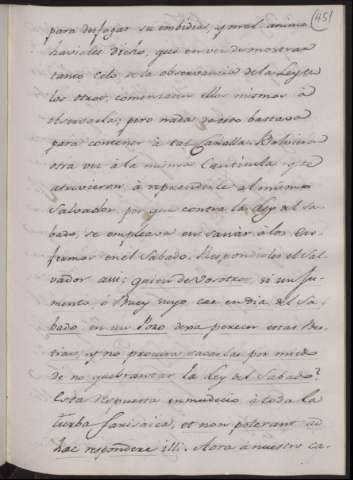 (45)
para desfogar su embidia, y mal animo
haviales dicho, que en vez de mostrar
tanto Celo, a la observancia de la Ley en
los otros, comenzaran ellos mismos à
observarla; pero nada de eso bastava
para contener à tal Canalla. Bolvieron
otra vez à la misma Cantinela, y se
atrevieron à reprender al mismo
Salvador, por que contra la Ley del Sa-
bado, se empleava en sanar à los En-
fermos en el Sabado. Respondioles el Sal-
vador asi: quien de Vosotros, si un Ju-
mento, ò Buey suyo cae en dia de Sa-
bado en un Pozo dexa perecer estas Bes-
tias, y no procura sacarlas por miedo
de no quebrantar la Ley del Sabado?
Esta respuesta enmudeciò à toda la
turba farisaica, et non poterant ad
hæc respondere illi. Aora à nuestro ca-